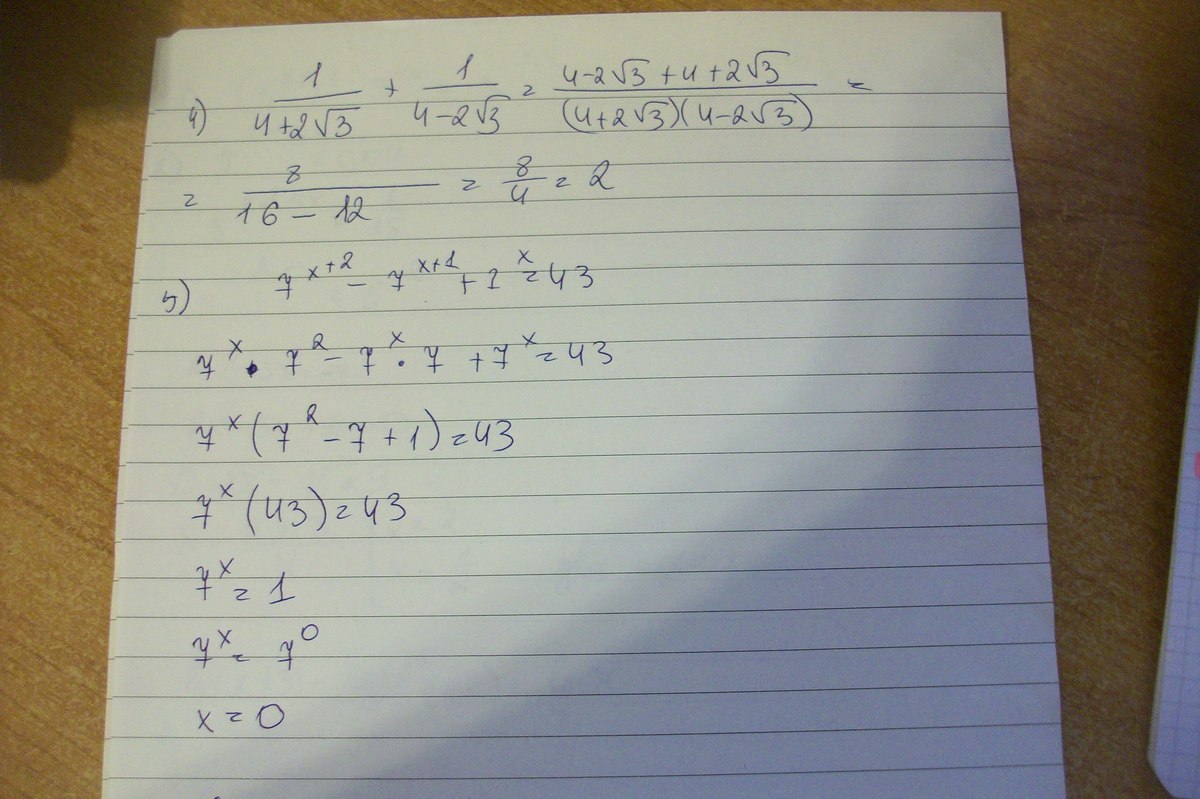 4) 1/(4+2√3) + 1/(4-2√3) = (4-2√3+4+2√3)/((4+2√3)(4-2√3)) =
= 8/(16-12) = 8/4 = 2
5) 7^(x+2) - 7^(x+1) + 1^x = 43
7^x · 7^2 - 7^x · 7 + 7^x = 43
7^x (7^2 - 7 + 1) = 43
7^x (43) = 43
7^x = 1
7^x = 7^0
x = 0